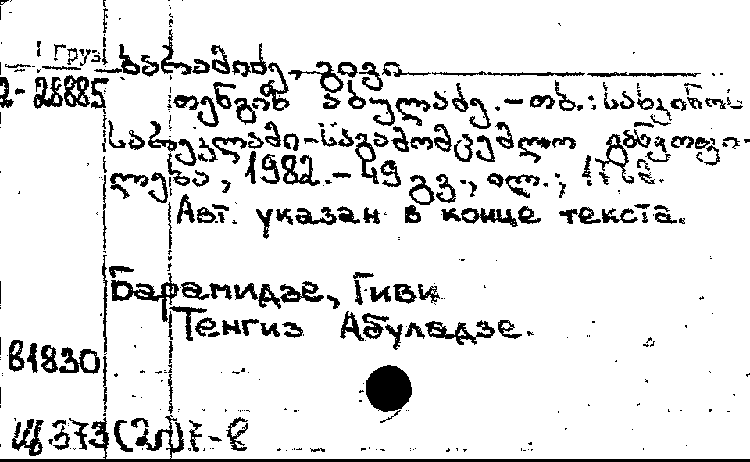 Груз
2-28885
ბარამიძე, გივი
თენგიზ აბულაძე. - თბ.: სახკინოს
სარეკლამო-საგამომცემლო განყოფი-
ლება, 1982. - 49 გვ., ილ.;
Авт. указан в конце текста.
Барамидзе, Гиви
Тенгиз Абуладзе.
В1830
Щ373(2